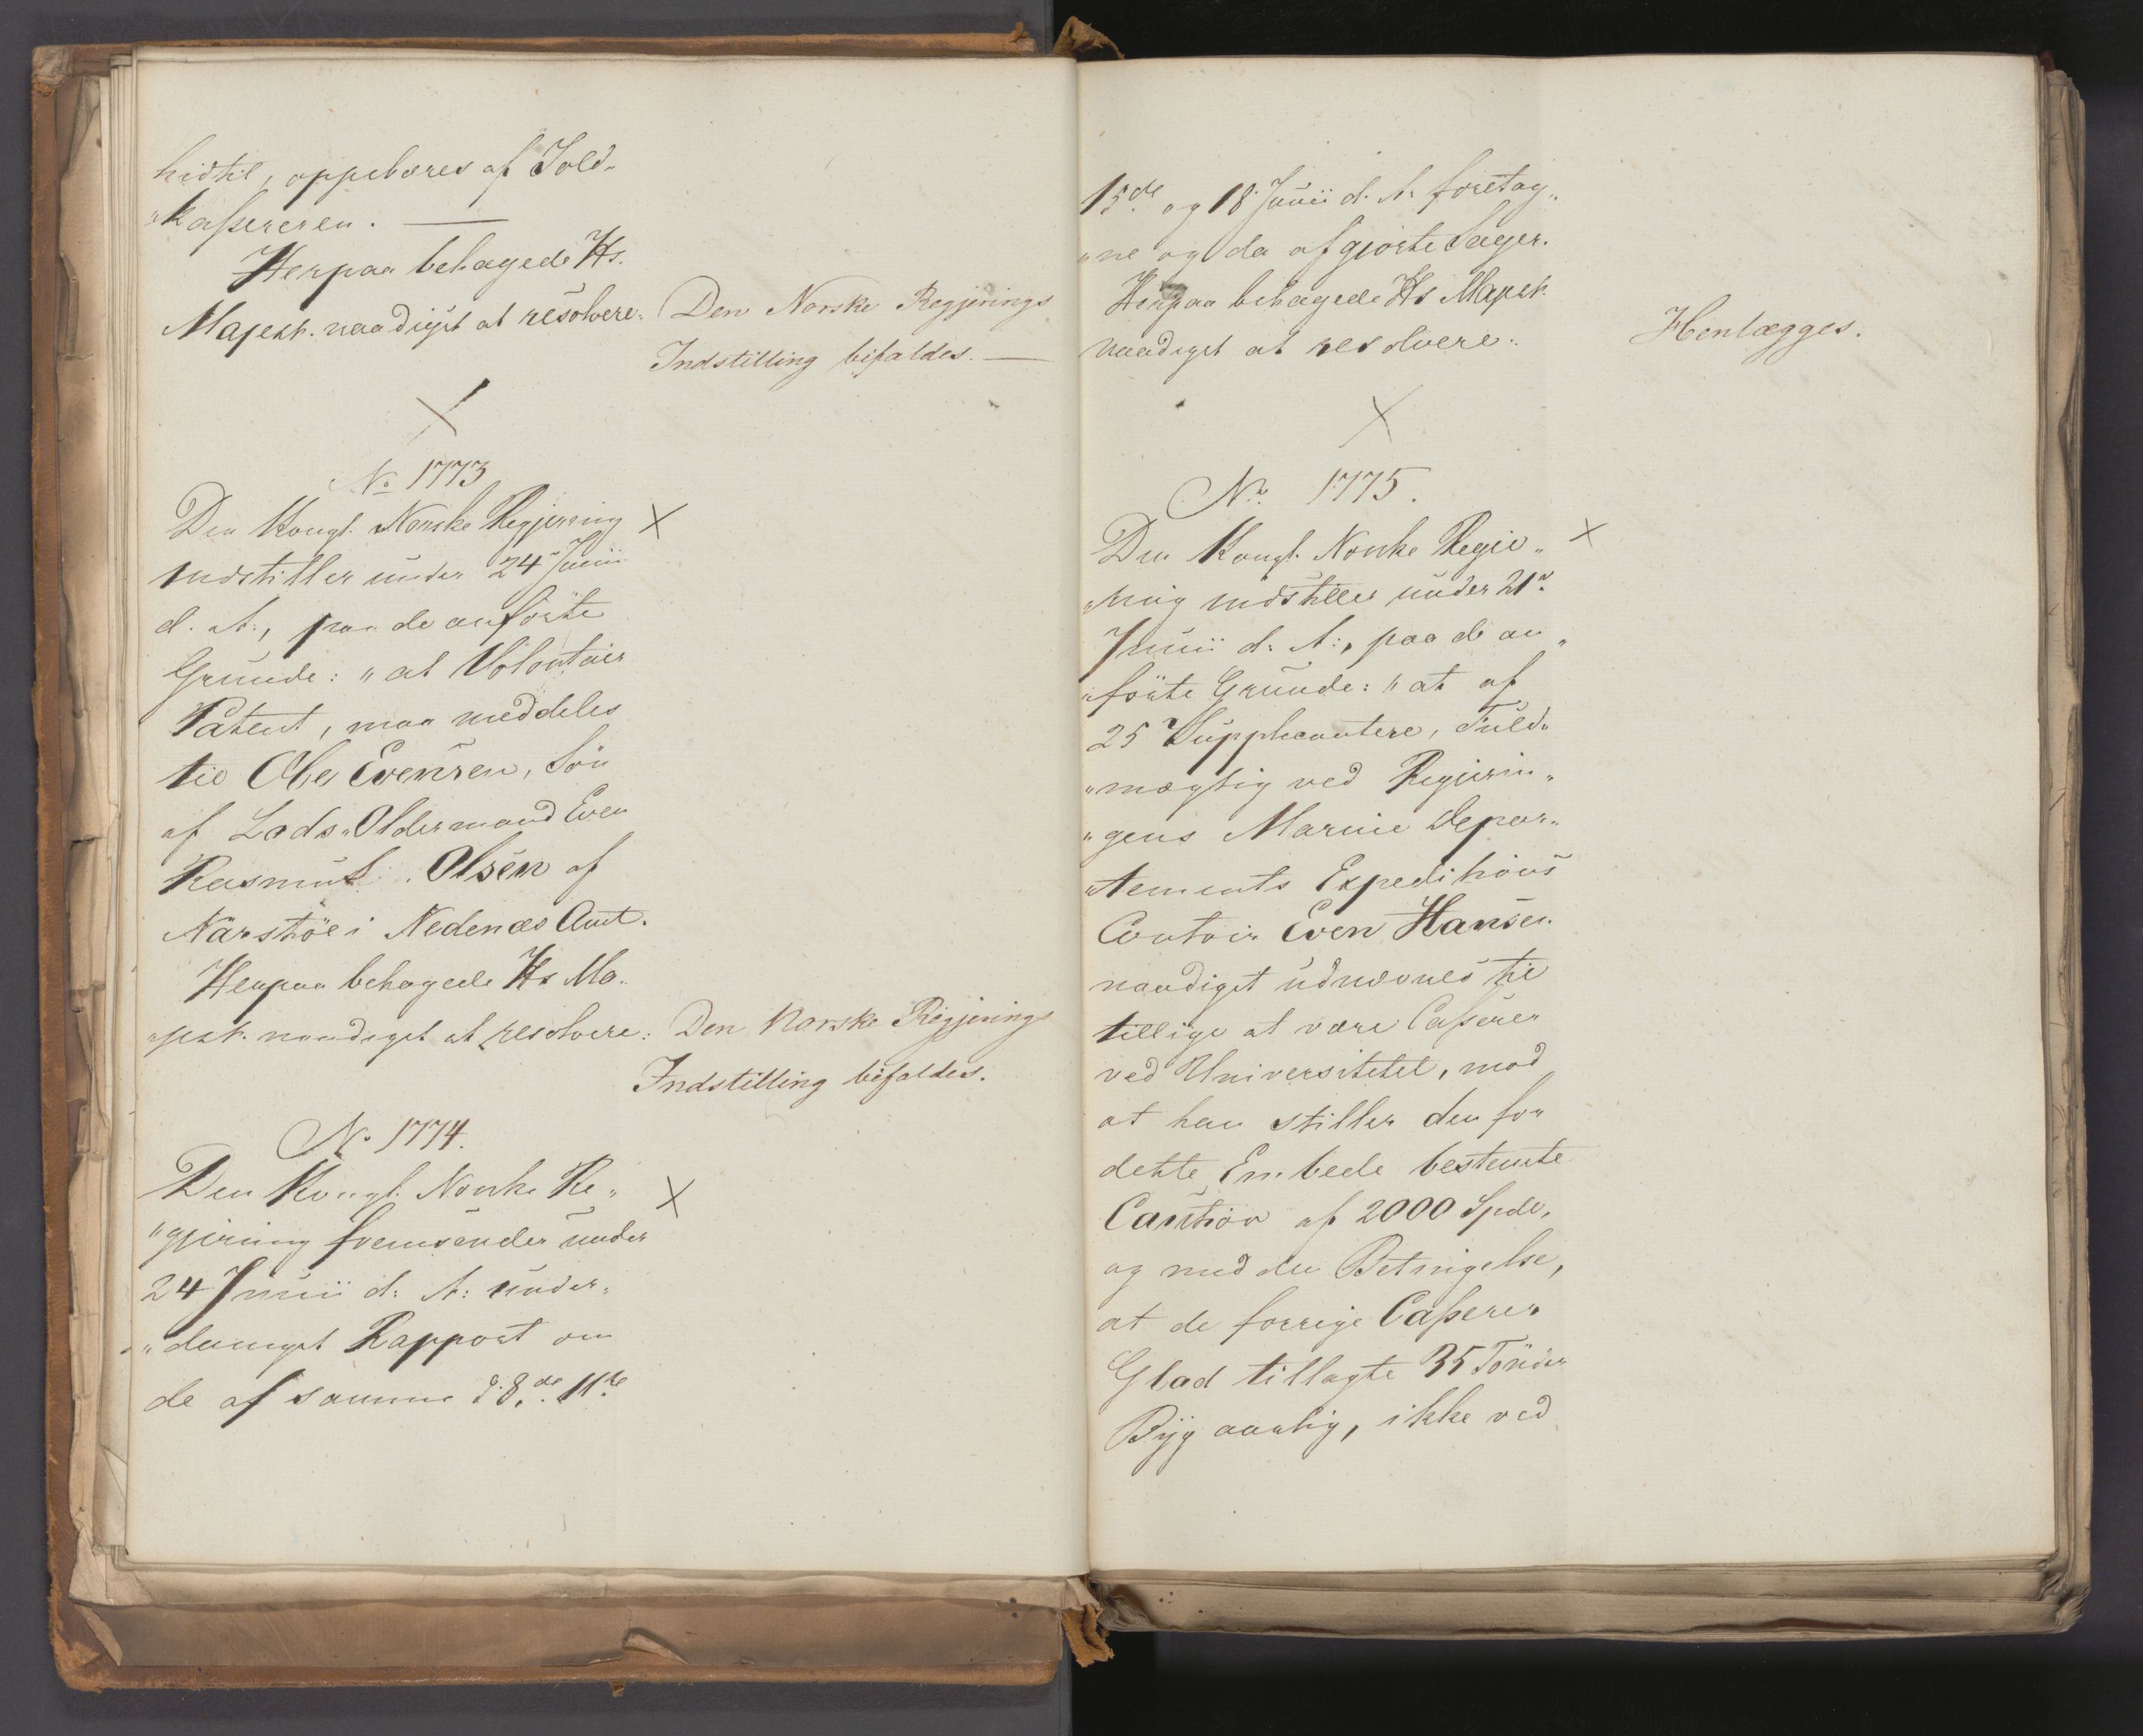 hidtil, oppebæres af Told„
„kasßereren. —
Herpaa behagede Hs.
Majest. naadigst at resolvere:
Den Norske Regjerings
Indstilling bifaldes. —
No 1773
Den Kongl. Norske Regjering
indstiller under 24 Junii
d. A:, paa de anførte
Grunde: „at Volontair
Patent, maa meddeles
til Ole Evensen, Søn
af Lods„Oldermand Even
Rasmus Olsen af
Närstöe i Nedenæs Amt.
Herpaa behagede Hs Ma„
„jest. naadigst at resolvere:
Den Norske Regjerings
Indstilling bifaldes.
No 1774.
Den Kongl. Norske Re„
„gjering fremsender under
24 Junii d: A: under„
„danigst Rapport om
de af samme d. 8de 11te
15de og 18 Junii d. A. foretag„
„ne og da afgjorte Sager.
Herpaa behagede Hs Majest.
naadigst at resolvere:
Henlægges.
No 1775.
Den Kongl. Norske Regie„
„ring indstiller under 21de
Junii d: A:, paa de an„
„førte Grunde: „at af
25 Supplicantere, Fuld„
„mægtig ved Regjerin„
„gens Marine Depar„
„tements Expeditions
Contoir Even Hansen
naadigst udnævnes til
tillige at være Casßerer
ved Universitetet, mod
at han stiller den for
dette Embede bestemte
Caution af 2000 Spdl,
og med den Betingelse,
at de forrige Casßerer
Glad tillagte 35 Tønder
Byg aarlig, ikke ved